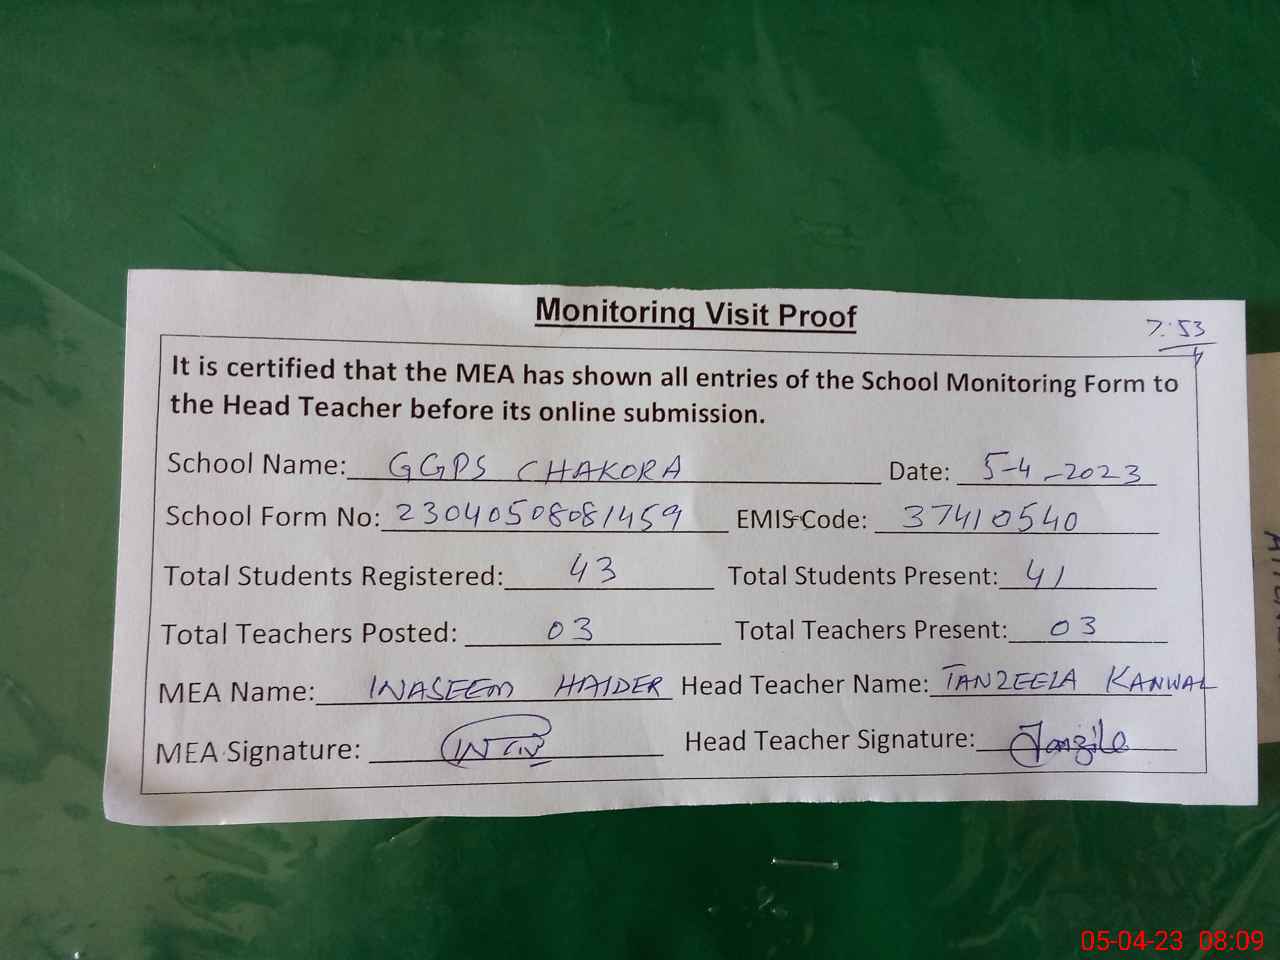 Monitoring Visit Proof
7:53
It is certified that the MEA has shown all entries of the School Monitoring Form to
the Head Teacher before its online submission.
School Name: GGPS CHAKORA Date: 5-4-2023
School Form No: 23040508081459 EMIS Code: 37410540
Total Students Registered: 43 Total Students Present: 41
Total Teachers Posted: 03 Total Teachers Present: 03
MEA Name: WASEEM HAIDER Head Teacher Name: TANZEELA KANWAL
MEA Signature: Head Teacher Signature: Tanzila
05-04-23 08:09